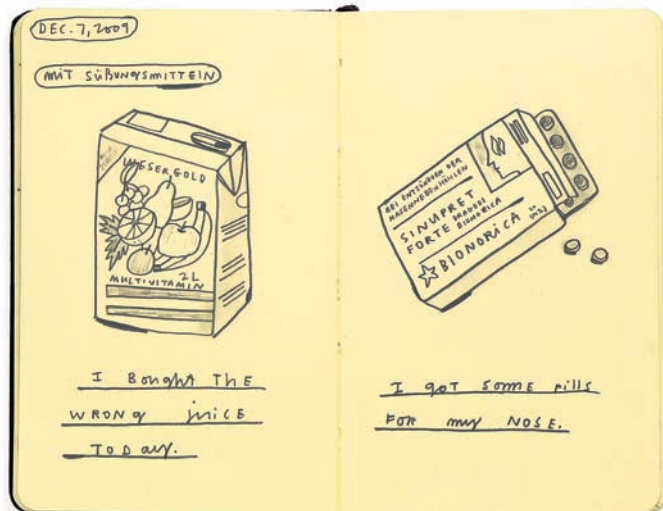 DEC. 7, 2009
MIT SÜßUNGSMITTELN
WESERGOLD
2L
MULTIVITAMIN
I BOUGHT THE
WRONG JUICE
TODAY.
BEI ENTZÜNDEN DER
NASENNEBENHÖHLEN
SINUPRET
FORTE DRAGEES
BIONORICA
BIONORICA
I GOT SOME PILLS
FOR MY NOSE.